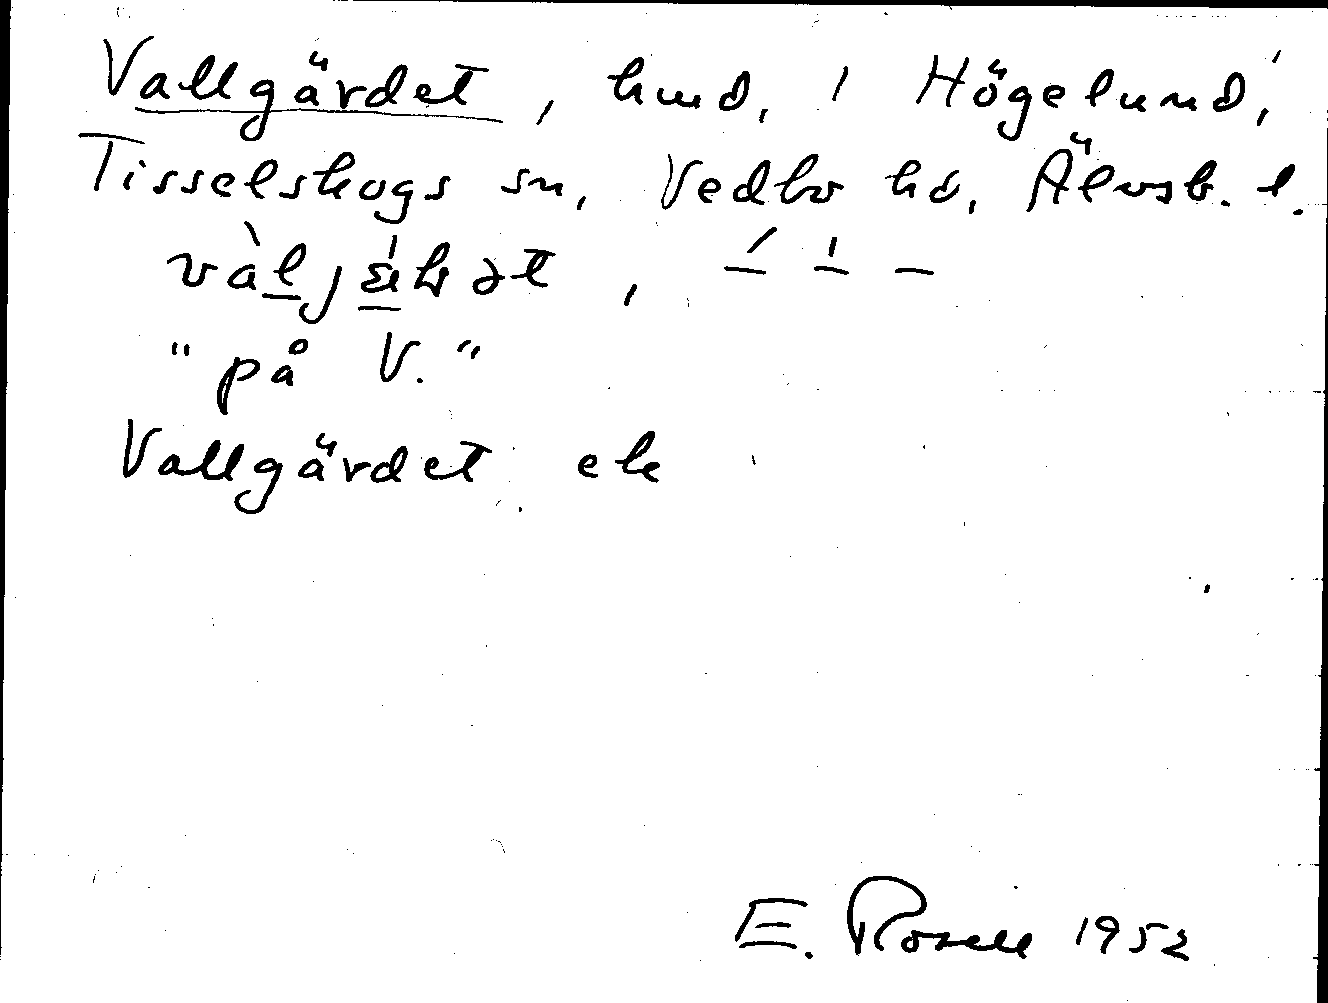 Vallgärdet, hmd, 1 Högelund,
Tisselskogs sn, Vedbo hd, Älvsb. l.
"på V."
Vallgärdet ek
E. Rosell 1952